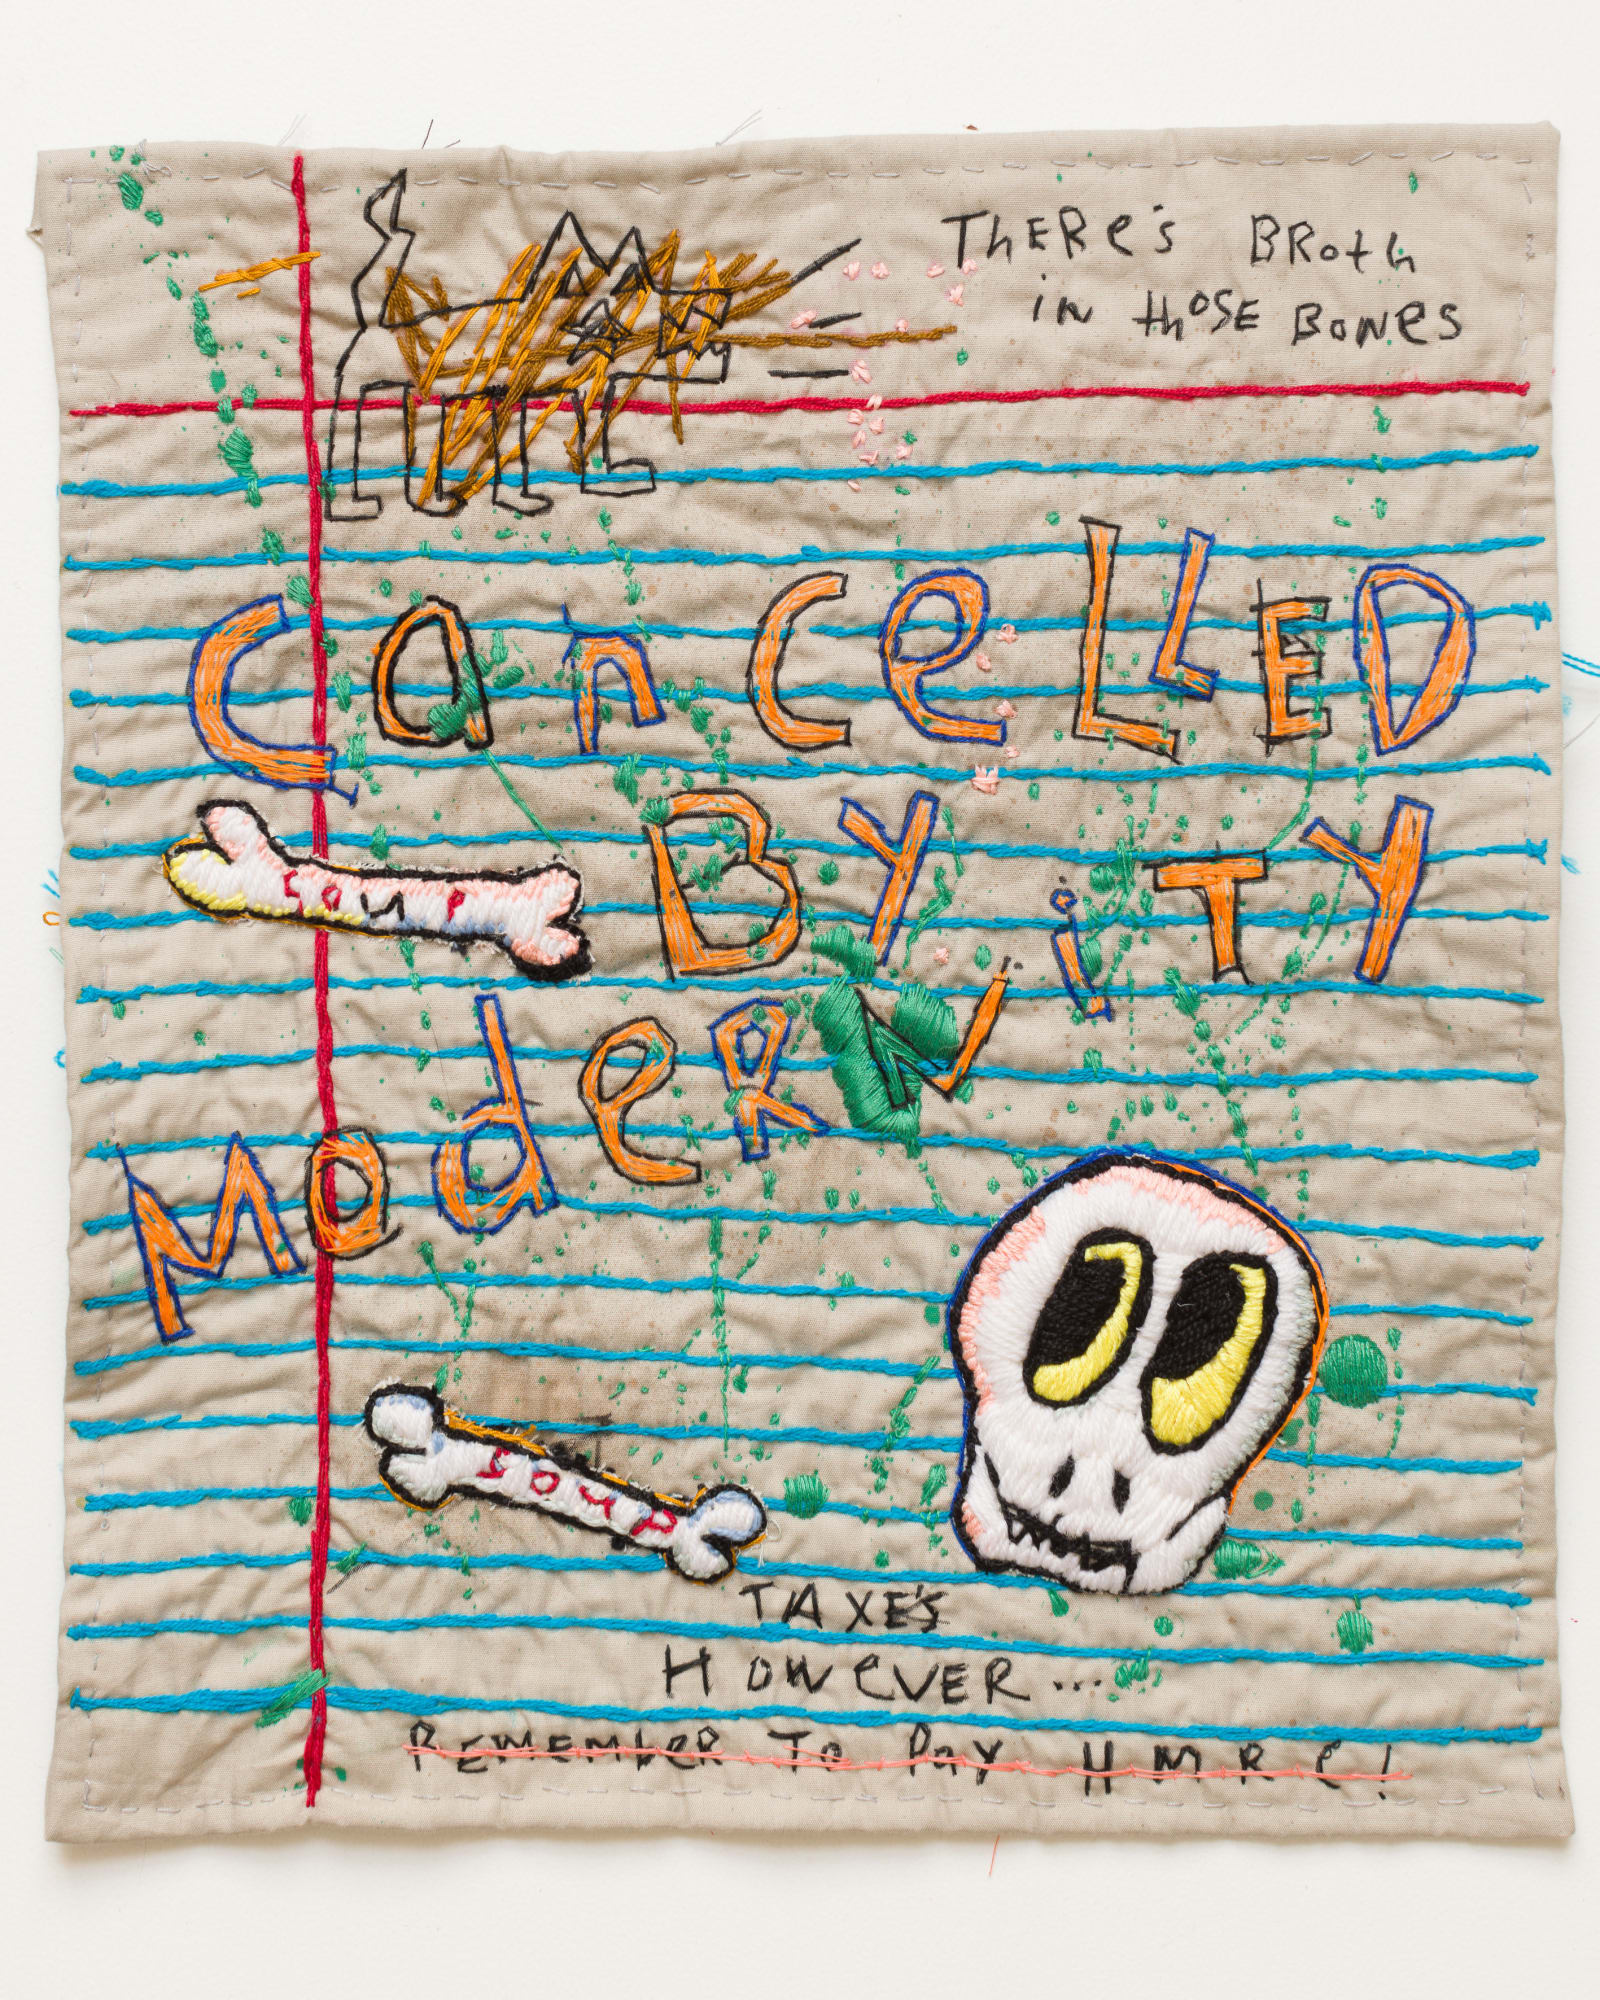 THERe's BRoth
in thOSE BoNeS
CanceLLED
soup
BY iTY
ModeRN
soup
TAXE'S
HoWeVER...
REMEMbeR To PaY HMRC!